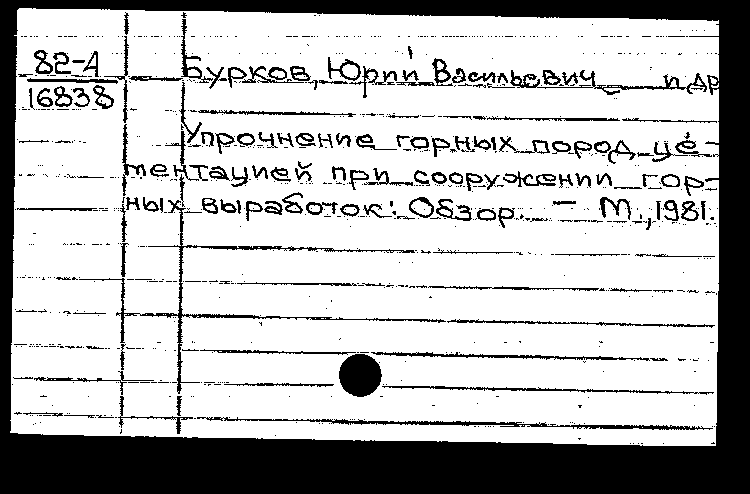 82-А
16838
Бурков, Юрий Васильевич и др
Упрочнение горных пород це-
ментацией при сооружении гор-
ных выработок: Обзор. – М., 1981.